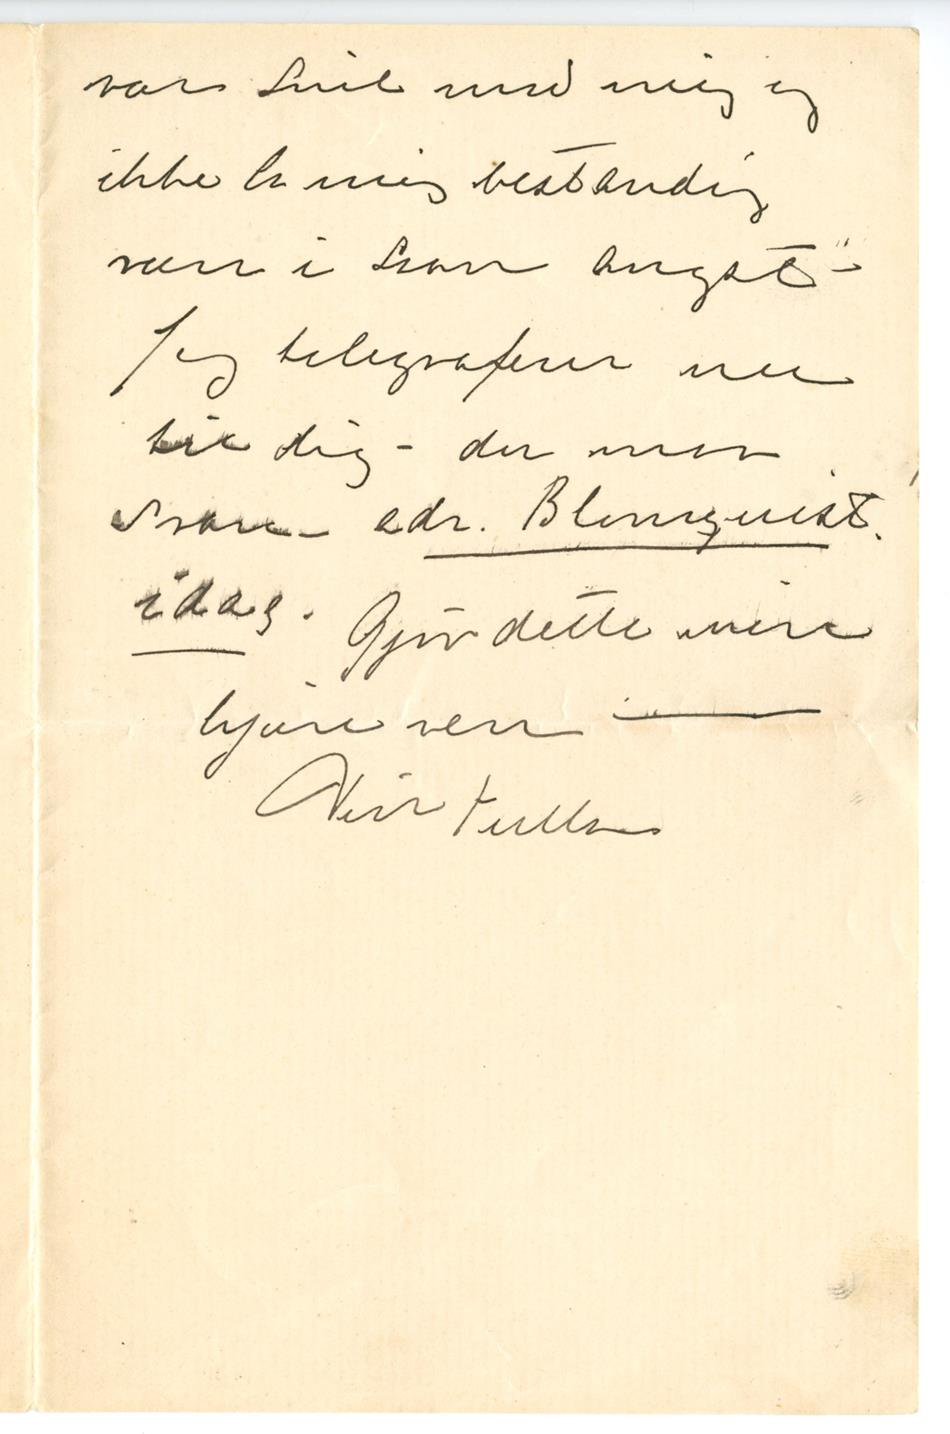 vær snil med mig og
ikke la mig bestandig
være i saan angst –
Jeg telegraferer nu
til dig – du maa
svare – adr. Blomquist.
idag. Gjør dette min
kjære ven
Din Tulla